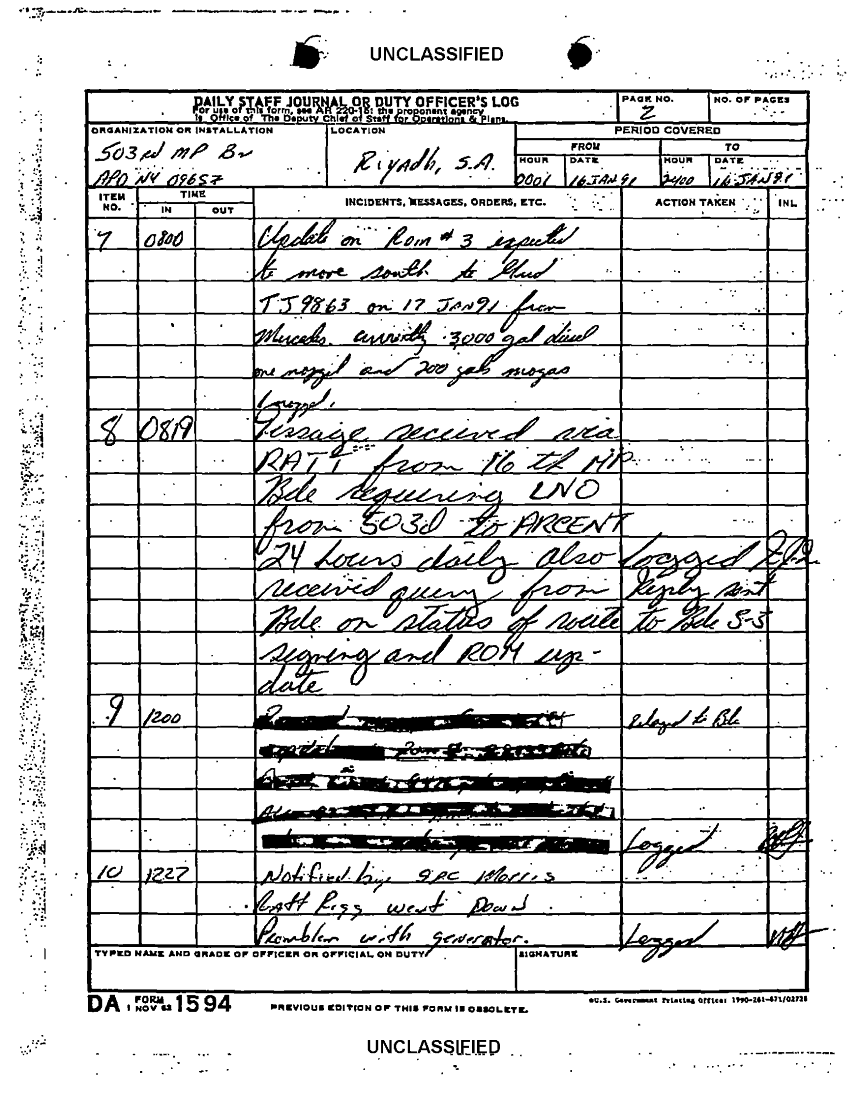 UNCLASSIFIED
DAILY STAFF JOURNAL OR DUTY OFFICER'S LOG
For use of this form, see AR 220-15; the proponent agency
is Office of The Deputy Chief of Staff for Operations & Plans.
PAGE NO.
2
NO. OF PAGES
ORGANIZATION OR INSTALLATION
503rd MP Bn
APO NY 09657
LOCATION
Riyadh, S.A.
PERIOD COVERED
FROM
TO
HOUR
DATE
HOUR
DATE
0001
16 JAN 91
2400
16 JAN 91
ITEM NO.
TIME
IN
OUT
INCIDENTS, MESSAGES, ORDERS, ETC.
ACTION TAKEN
INL
7 0800 Update on Rom # 3 expected
to move south to Grid
TJ9863 on 17 JAN 91 from
Mercedes. currently 3000 gal diesel
one nozzel and 200 gals mogas
1 nozzel.
8 0819 Message received via
RATT from 16th MP
Bde requiring LNO
from 503d to ARCENT
24 hours daily also Logged
received query from Reply sent
Bde on status of route to Bde S-3
signing and ROM up-
date
9 1200 Relayed to Bde
Logged
10 1227 Notified by SPC Morris
Ratt Rigg went Down
Promblem with generator. Logged
TYPED NAME AND GRADE OF OFFICER OR OFFICIAL ON DUTY
SIGNATURE
DA FORM 1 NOV 62 1594
PREVIOUS EDITION OF THIS FORM IS OBSOLETE.
U.S. Government Printing Office: 1990-261-871/02728
UNCLASSIFIED